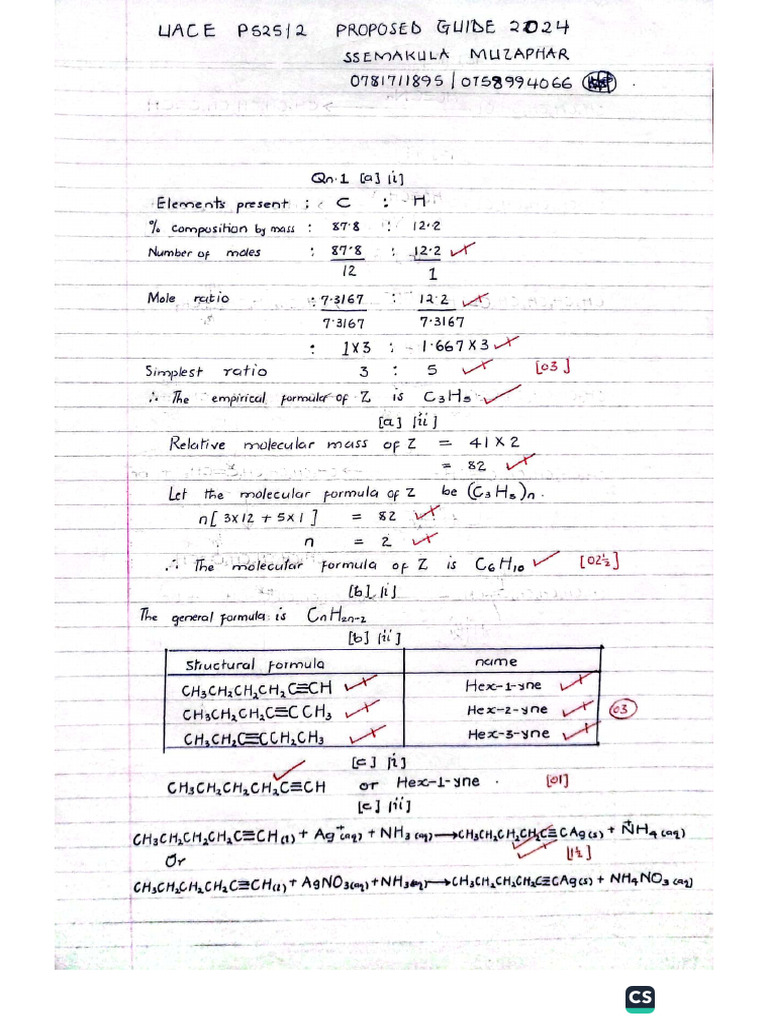 UACE P525/2 PROPOSED GUIDE 2024
SSEMAKULA MUZAPHAR
0781711895 / 0758994066
Qn.1 [a] [i]
Elements present : C : H
% composition by mass : 87.8 : 12.2
Number of moles : 87.8/12 : 12.2/1
Mole ratio : 7.3167/7.3167 : 12.2/7.3167
: 1x3 : 1.667x3
Simplest ratio 3 : 5 [03]
∴ The empirical formular of Z is C₃H₅
[a] [ii]
Relative molecular mass of Z = 41 x 2
= 82
Let the molecular formula of Z be (C₃H₅)n.
n[3x12 + 5x1] = 82
n = 2
∴ The molecular formula of Z is C₆H₁₀ [02½]
[b] [i]
The general formula is CnH2n-2
[b] [ii]
Structural formula name
CH₃CH₂CH₂CH₂C≡CH Hex-1-yne
CH₃CH₂CH₂C≡CCH₃ Hex-2-yne 03
CH₃CH₂C≡CCH₂CH₃ Hex-3-yne
[c] [i]
CH₃CH₂CH₂CH₂C≡CH or Hex-1-yne. [01]
[c] [ii]
CH₃CH₂CH₂CH₂C≡CH(l) + Ag⁺(aq) + NH₃(aq) → CH₃CH₂CH₂CH₂C≡CAg(s) + N⁺H₄(aq)
Or [1½]
CH₃CH₂CH₂CH₂C≡CH(l) + AgNO₃(aq) + NH₃(aq) → CH₃CH₂CH₂CH₂C≡CAg(s) + NH₄NO₃(aq)
CS